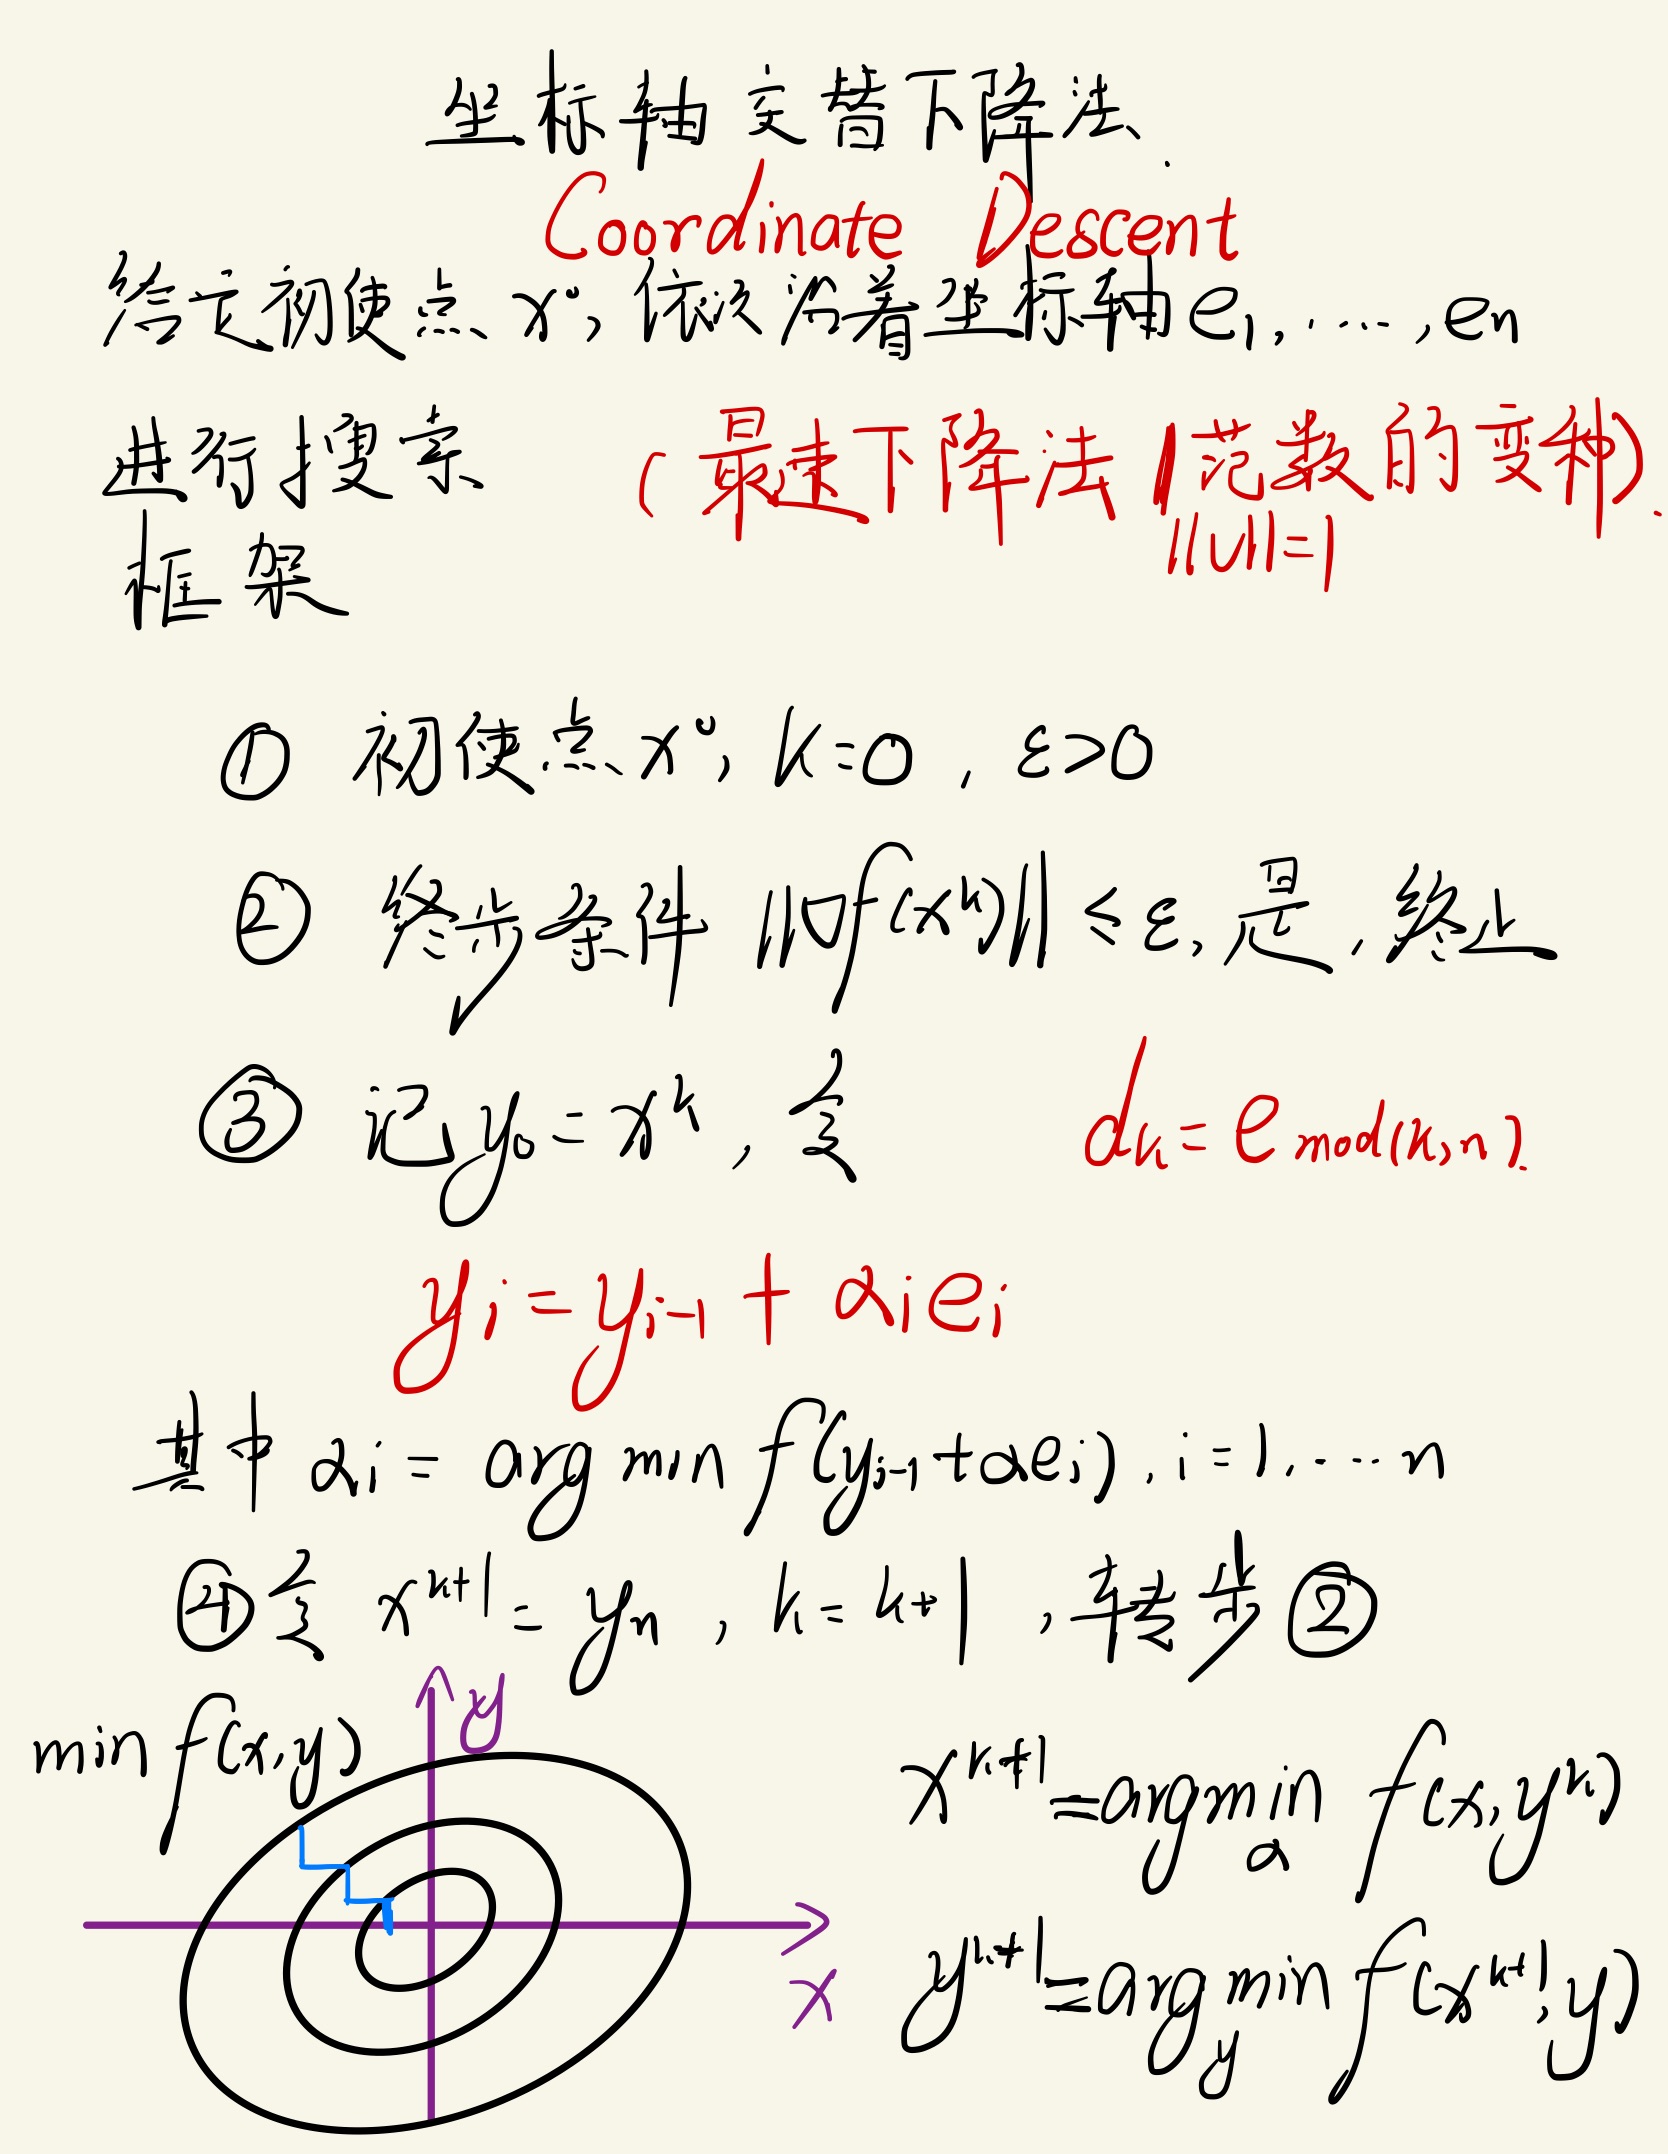 坐标轴交替下降法.
Coordinate Descent
给定初使点 x⁰, 依次沿着坐标轴 e₁, ...., eₙ
进行搜索 (最速下降法 1范数的变种).
||v||=1
框架
① 初使点 x⁰, k=0, ε>0
② 终步条件 ||∇f(xᵏ)|| ≤ ε, 是, 终止
③ 记 y₀ = xᵏ, 令 dₖ = e mod(k,n).
yᵢ = yᵢ₋₁ + αᵢeᵢ
其中 αᵢ = arg min f(yᵢ₋₁+αeᵢ), i=1,....n
④ 令 xᵏ⁺¹ = yₙ, k = k+1, 转步②
min f(x,y)
y
x
xᵏ⁺¹ = argmin f(x, yᵏ)
α
yᵏ⁺¹ = arg min f(xᵏ⁺¹, y)
y